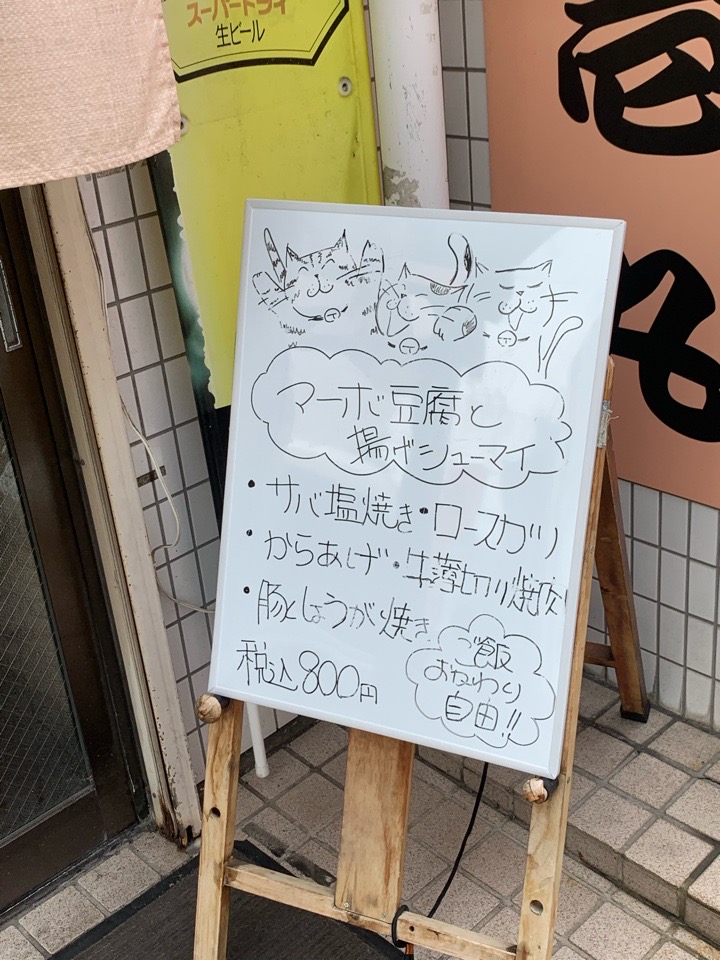 スーパードライ
生ビール
マーボ豆腐と
揚げシューマイ
・サバ塩焼き・ロースカツ
からあげ・牛薄切り焼肉
・豚しょうが焼き
税込800円
ご飯
おかわり
自由!!